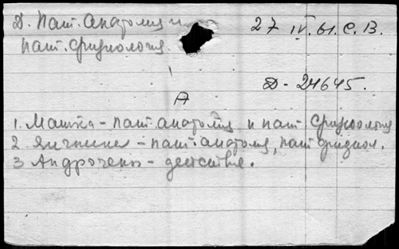 Д. Пат. Анатомия и
пат. физиология
27 IV. 61. С. В.
Д - 24645.
А
1. Матка - пат. анатомия и пат. физиология
2 Яичники - пат. анатомия, пат. физиол.
3 Андрогены - действие.